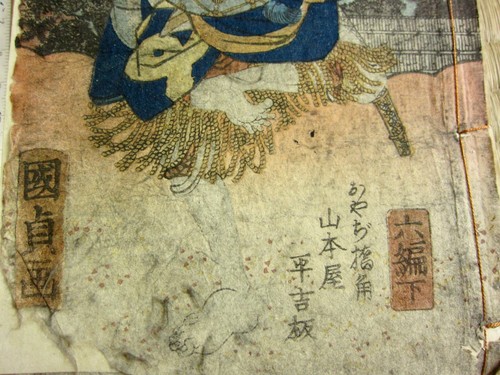 六編下
おやぢ橋角
山本屋
平吉板
國貞画